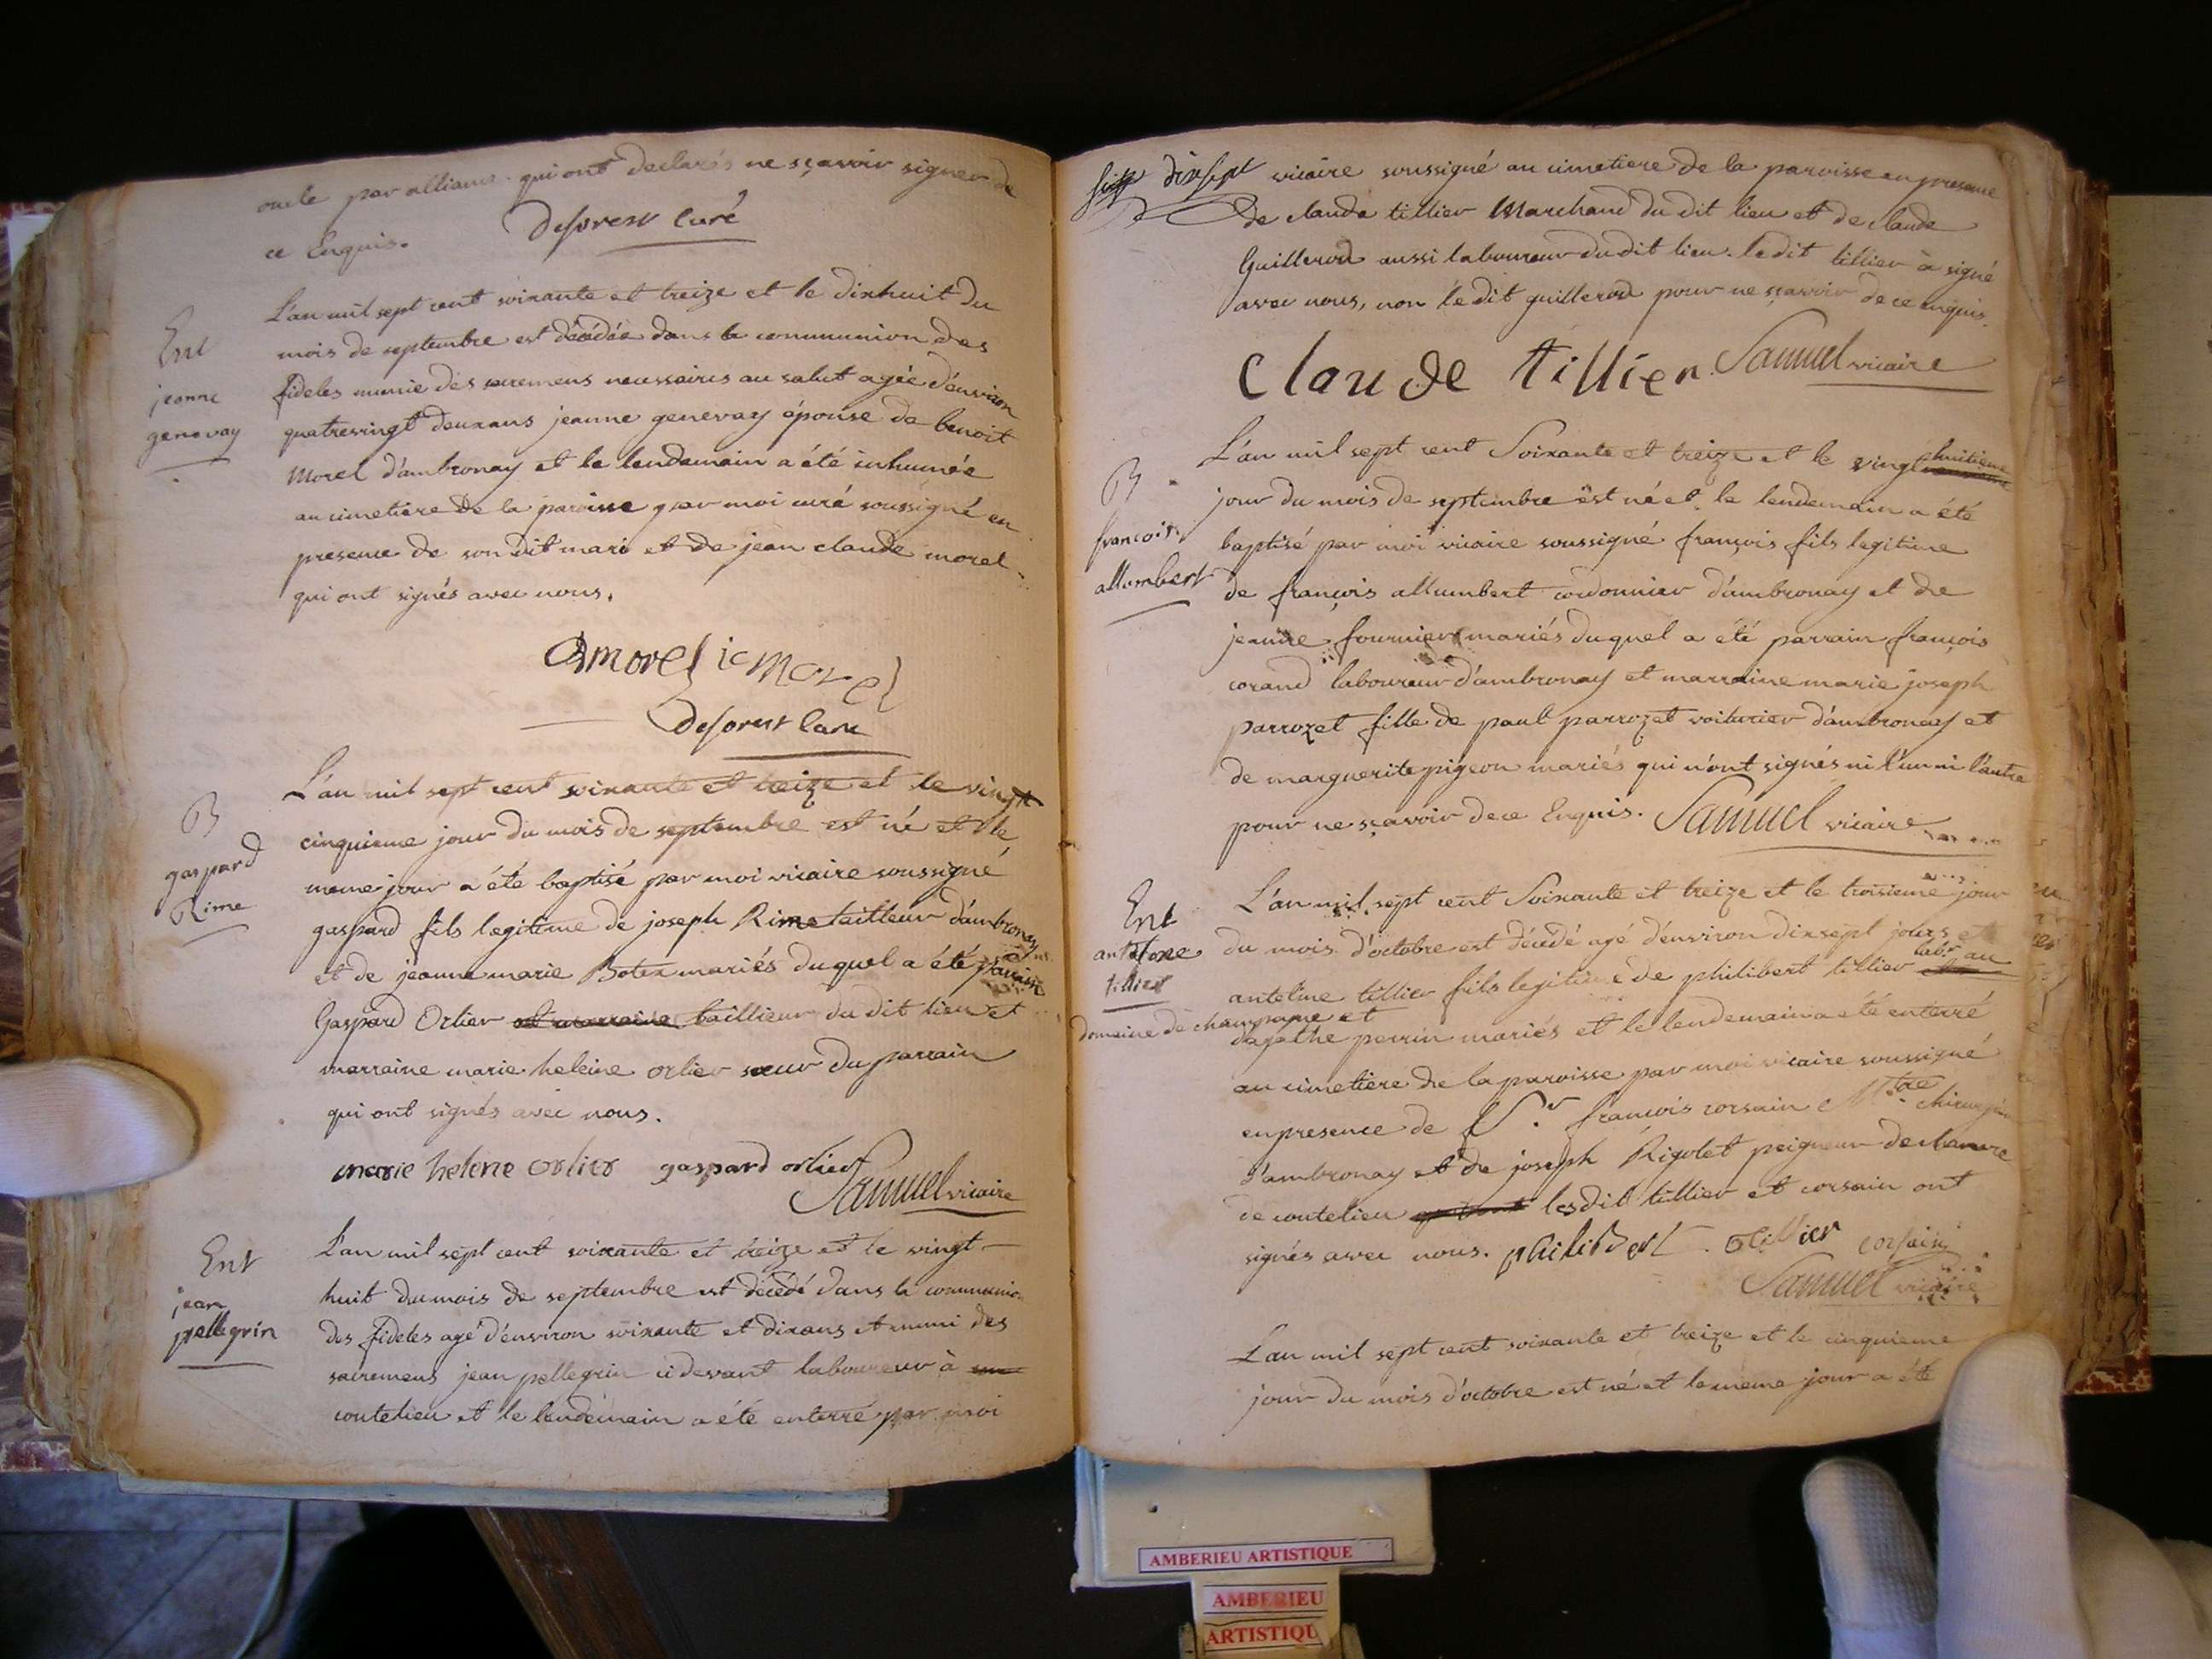 oncle par alliance qui ont declarés ne sçavoir signer de
ce Enquis.
deforest curé
Ent
jeanne
genevay
L'an mil sept cent soixante et treize et le dixhuit du
mois de septembre est décédée dans la communion des
fideles munie des sacremens necessaires au salut agée d'environ
quatrevingt deux ans jeanne genevay épouse de benoit
Morel d'ambronay et le lendemain a été inhumée
au cimetiere de la paroisse par moi curé soussigné en
presence de son dit mari et de jean claude morel
qui ont signés avec nous.
Bmorel jc morel
deforest curé
B
gaspard
Rime
L'an mil sept cent soixante et treize et le vingt
cinquieme jour du mois de septembre est né et le
meme jour a été baptisé par moi vicaire soussigné
gaspard fils legitime de joseph Rime tailleur d'ambronay
et de jeanne marie Botex mariés duquel a été parrain
Gaspard Orlier et marraine taillieur du dit lieu et
marraine marie heleine orlier sœur du parrain
qui ont signés avec nous.
marie helene orlier gaspard orlier
Samuel vicaire
Ent
jean
pellegrin
L'an mil sept cent soixante et treize et le vingt
huit du mois de septembre est décédé dans la communion
des fideles agé d'environ soixante et dix ans et muni des
sacremens jean pellegrin ci devant laboureur à
coutelieu et le lendemain a été enterré par moi
dixsept
vicaire soussigné au cimetiere de la paroisse en presence
de claude tillier Marchand du dit lieu et de claude
Guillerod aussi laboureur du dit lieu. le dit tillier à signé
avec nous, non le dit guillerod pour ne sçavoir de ce enquis.
Claude tillier Samuel vicaire
B
francois
allumbert
L'an mil sept cent Soixante et treize et le vingt huitieme
jour du mois de septembre est né et le lendemain a été
baptisé par moi vicaire soussigné françois fils legitime
de françois allumbert cordonnier d'ambronay et de
jeanne fournier mariés duquel a été parrain françois
corand laboureur d'ambronay et marraine marie joseph
parrozet fille de paul parrozet voiturier d'ambronay et
de marguerite pigeon mariés qui n'ont signés ni l'un ni l'autre
pour ne sçavoir de ce Enquis. Samuel vicaire
Ent
antelme
tillier
L'an mil sept cent Soixante et treize et le troisieme jour
du mois d'octobre est décédé agé d'environ dixsept jours et
antelme tillier fils legitime de philibert tillier labr. au
domaine de champagne et
d'agathe perrin mariés et le lendemain a été enterré
au cimetiere de la paroisse par moi vicaire soussigné
en presence de Sr. francois corsain Mtre. chirurgien
d'ambronay et de joseph Rigolet peigneur de chanvre
de coutelieu lesdit tillier et corsain ont
signés avec nous. philibert tillier corsain
Samuel vicaire
L'an mil sept cent soixante et treize et le cinquieme
jour du mois d'octobre est né et le même jour a été
AMBERIEU ARTISTIQUE
AMBERIEU
ARTISTIQU